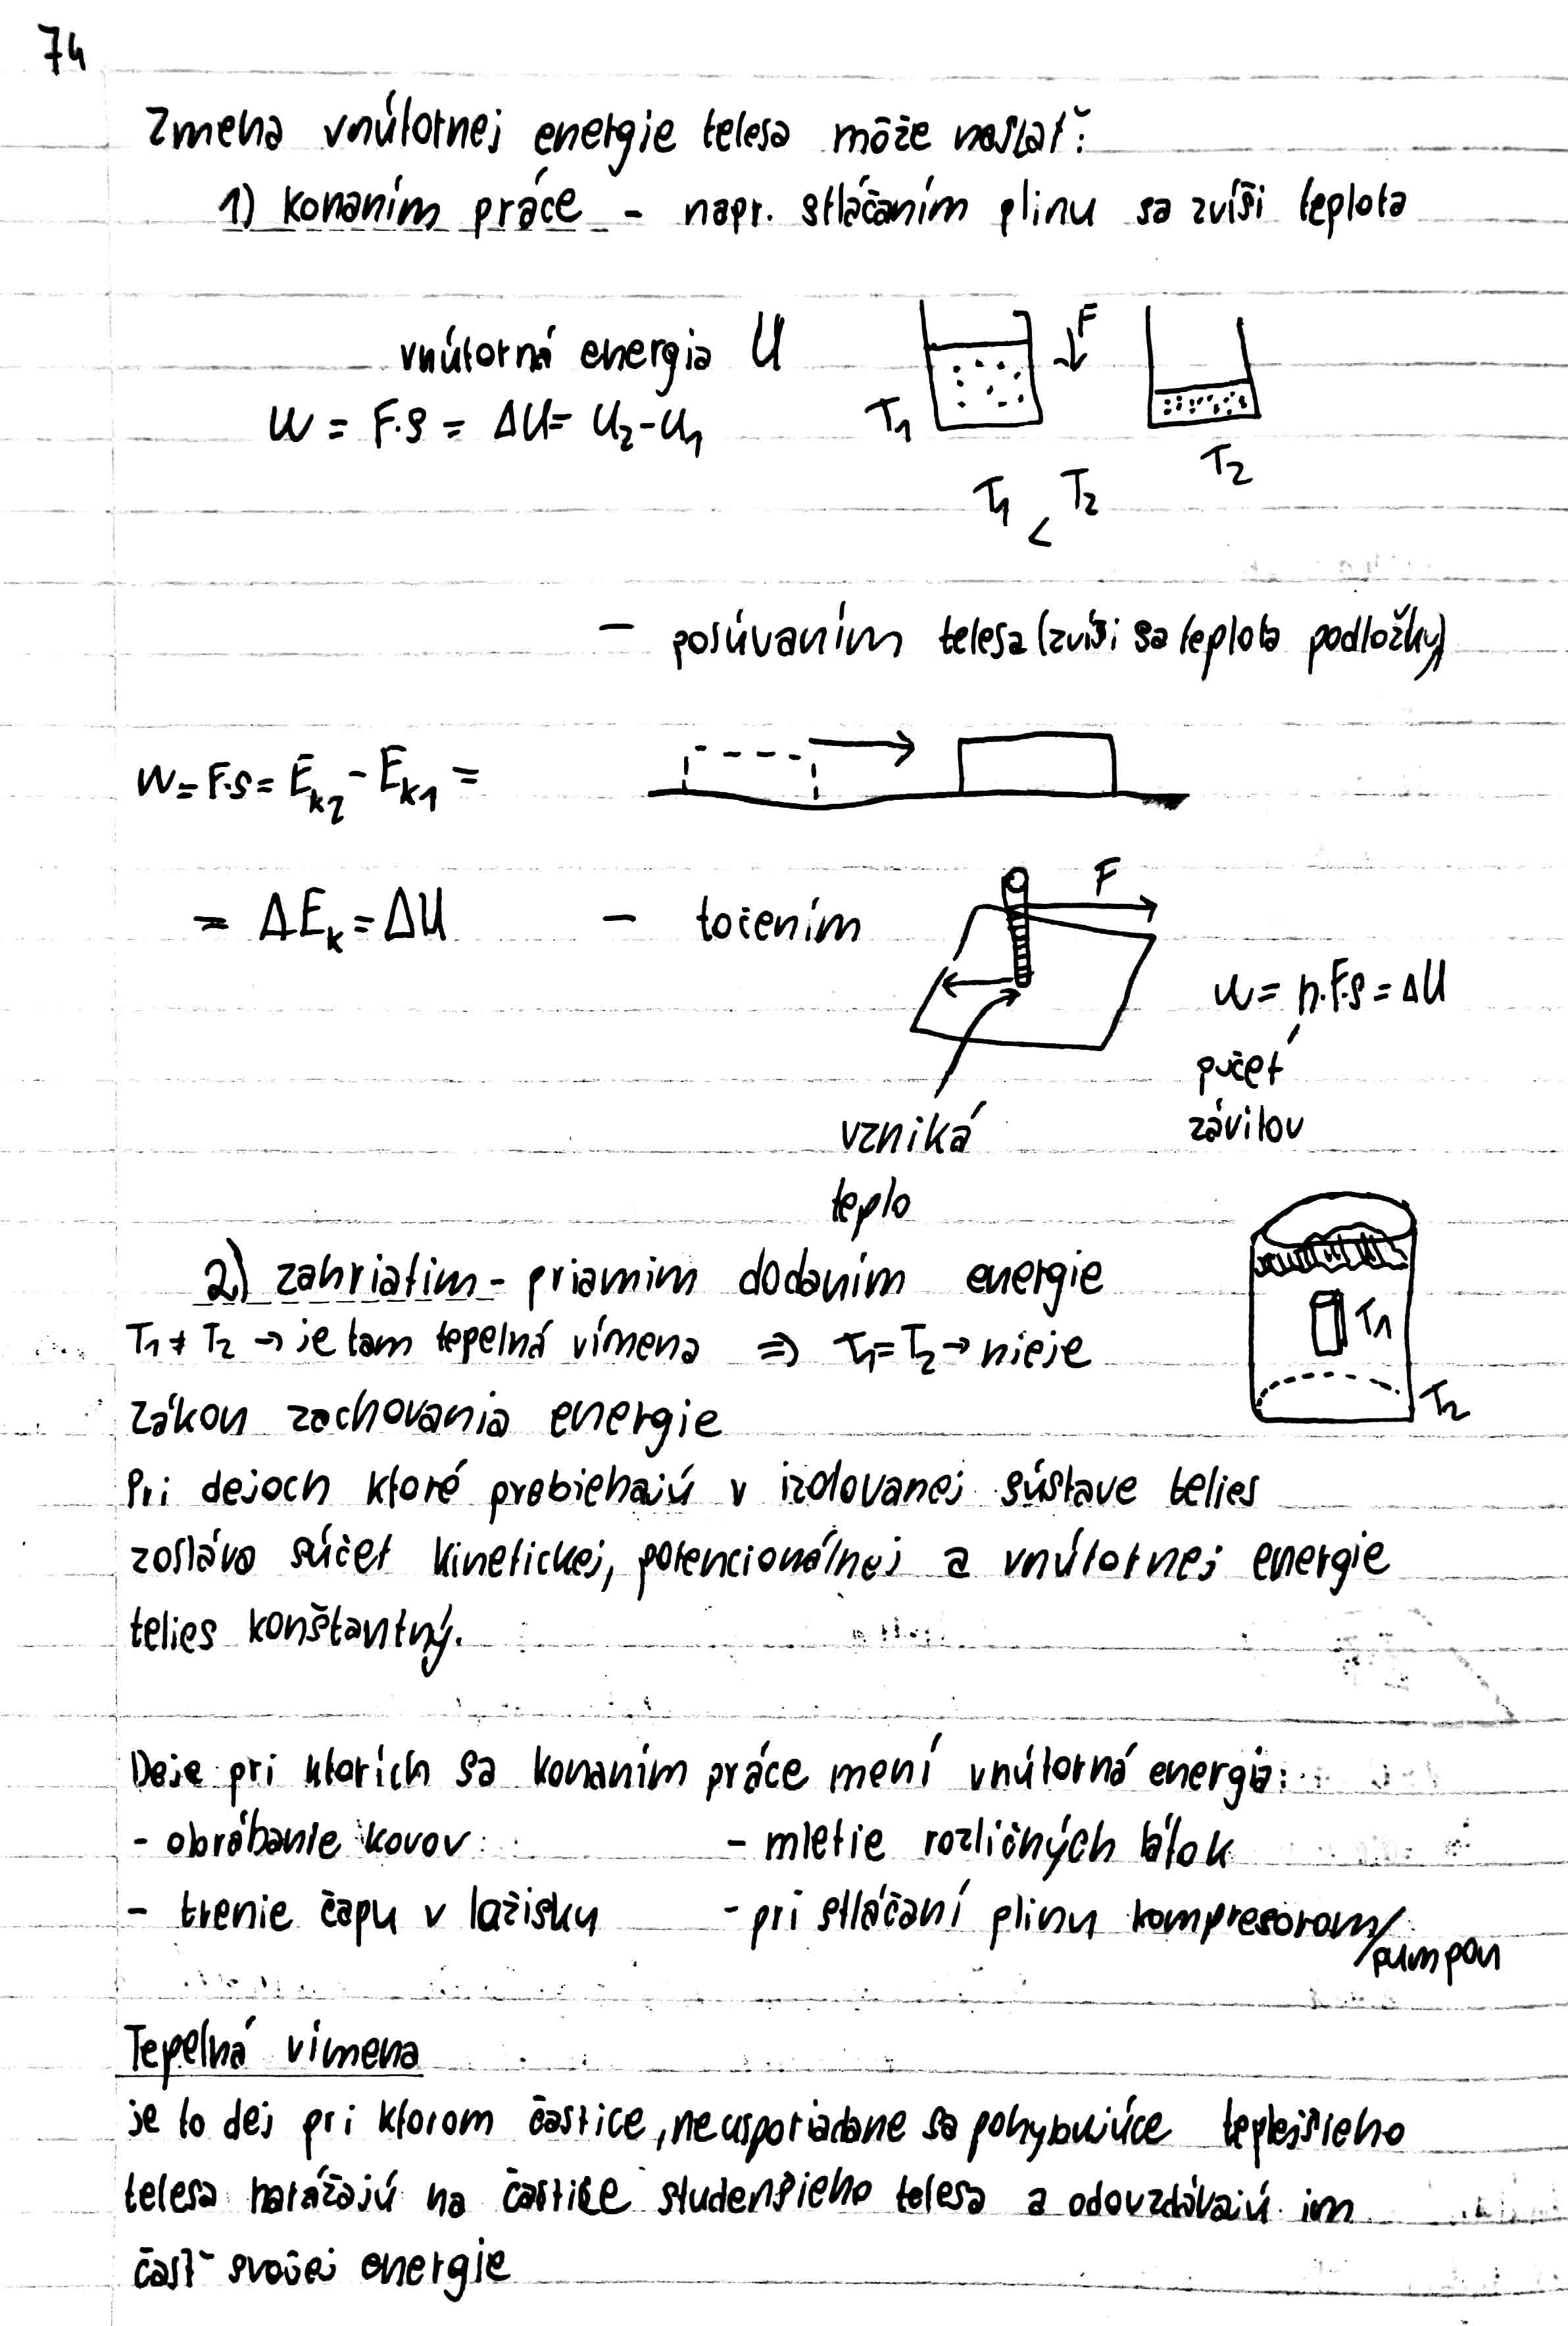 74
Zmena vnútornej energie telesa môže nastať:
1) konaním práce - napr. stláčaním plinu sa zvíši teplota
vnútorná energia U
F
W = F.s = ΔU= U₂-U₁
T₁
T₂
T₁ < T₂
- posúvaním telesa (zvíši sa teplota podložky)
W=F.s= Ek2 - Ek1 =
= ΔEk = ΔU
- točením
F
W= n.F.s = ΔU
počet
závitov
vzniká
teplo
2) zahriatim - priamim dodaním energie
T₁ ≠ T₂ → je tam tepelná vímena ⇒ T₁=T₂ → nieje
T₁
T₂
Zákon zachovania energie
Pri dejoch ktoré prebiehajú v izolovanej sústave telies
zostáva súčet kinetickej, potencionálnej a vnútornej energie
telies konštantný.
Deje pri ktorích sa konaním práce mení vnútorná energia:
- obrábanie kovov
- mletie rozličných látok
- trenie čapu v ložisku
- pri stláčaní plinu kompresorom/
pumpou
Tepelná vímena
je to dej pri ktorom častice, neusporiadane sa pohybujúce teplejšieho
telesa narážajú na častice studenšieho telesa a odovzdávajú im
časť svojej energie